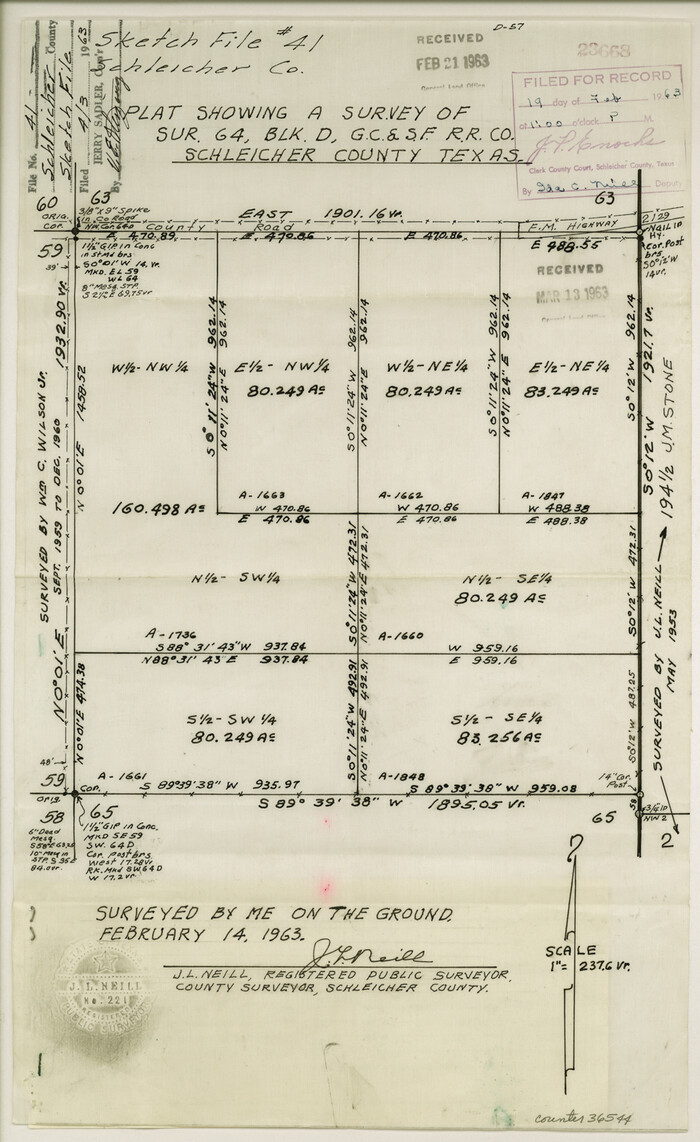 Sketch File #41
Schleicher Co.
D-57
File No. 41
Schleicher County
Sketch File
Filed 4/3 1963
JERRY SADLER, Com'r
By
RECEIVED
FEB 21 1963
General Land Office
23668
FILED FOR RECORD
19 day of Feb 1963
at 1:00 o'clock P M.
Clerk County Court, Schleicher County, Texas
By Ida C. Neill Deputy
PLAT SHOWING A SURVEY OF
SUR. 64, BLK. D, G.C. & S.F. R.R. CO.
SCHLEICHER COUNTY TEXAS.
60
63
63
ORIG.
COR.
3/8"x9" Spike
in Co Road
EAST 1901.16 vr.
County Road
F.M. HIGHWAY
2129
Nail in
Hy.
Cor. Post
brs
S0°12'W
14 vr.
E 470.89
E 470.86
E 470.86
E 488.55
59
39'
1½" GIP in Conc
in st Md brs
S0°01'W 14 vr.
MKD. EL 59
WL 64
8" Mesq. STP.
RECEIVED
MAR 13 1963
General Land Office
1932.90 vr.
N 0°01'E 1458.52
SURVEYED BY WM C. WILSON JR.
SEPT. 1959 TO DEC. 1960
N0°01'E
W½- NW¼
E½- NW¼
80.249 Ac
W½-NE¼
80.249 Ac
E½-NE¼
83.249 Ac
S0°11'24"W 962.14
N0°11'24"E 962.14
S0°11'24"W 962.14
N0°11'24"E 962.14
S0°11'24"W 962.14
N0°11'24"E 962.14
S0°12'W 962.14
S0°12'W 1921.7 vr.
194½ J.M. STONE
160.498 Ac
A-1663
W 470.86
E 470.86
A-1662
W 470.86
E 470.86
A-1847
W 488.38
E 488.38
N½- SW¼
N½- SE¼
80.249 Ac
S0°11'24"W 472.31
N0°11'24"E 472.31
S0°12'W 472.31
A-1736
S88°31'43"W 937.84
N88°31'43"E 937.84
A-1660
W 959.16
E 959.16
SURVEYED BY J.L. NEILL
MAY 1953
N0°01'E 474.38
S½- SW¼
80.249 Ac
S½- SE¼
83.256 Ac
S0°11'24"W 492.91
N0°11'24"E 492.91
S0°12'W 487.25
48'
59
A-1661
S 89°39'38" W 935.97
A-1848
S 89°39'38" W 959.08
14" Cor.
Post
Cor.
S 89° 39' 38" W 1895.05 vr.
ORIG.
58
65
65
58
3/6/0
NW 2
2
6" Dead
Mesq.
10" Mesq in
STP. S 35 E
84.0 vr.
1½" GIP in Conc.
MKD SE59
SW. 64D
Cor. post brs
West 17.28 vr
RK. Mkd SW64D
W 17.2 vr.
SURVEYED BY ME ON THE GROUND.
FEBRUARY 14, 1963.
J L Neill
J.L. NEILL, REGISTERED PUBLIC SURVEYOR,
COUNTY SURVEYOR, SCHLEICHER COUNTY.
J. L. NEILL
No. 221
SCALE
1"= 237.6 vr.
counter 36544